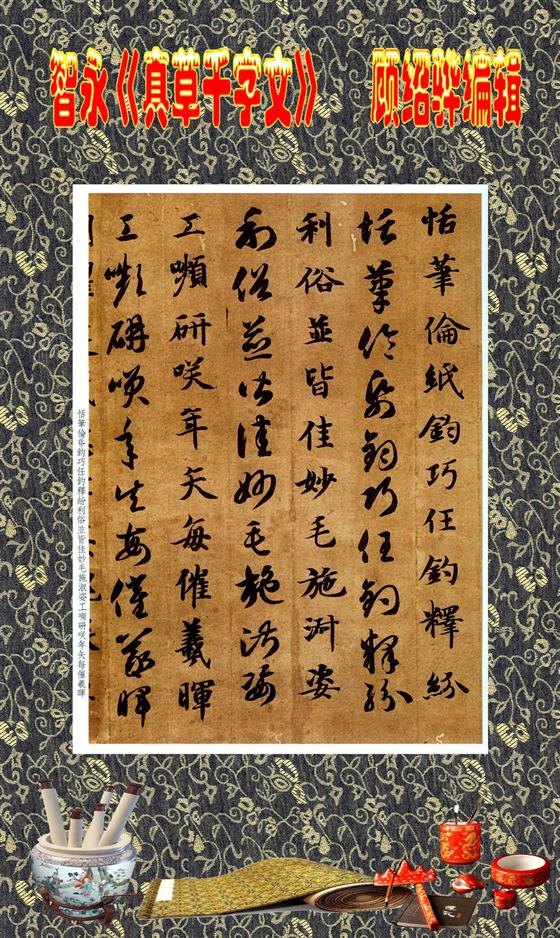 智永《真草千字文》 顾绍骅编辑
恬筆倫紙鈞巧任釣釋紛
恬筆倫紙鈞巧任釣釋紛
利俗並皆佳妙毛施淑姿
利俗並皆佳妙毛施淑姿
工嚬研咲年矢每催羲暉
工嚬研咲年矢每催羲暉
恬筆倫紙鈞巧任釣釋紛利俗並皆佳妙毛施淑姿工嚬研咲年矢每催羲暉